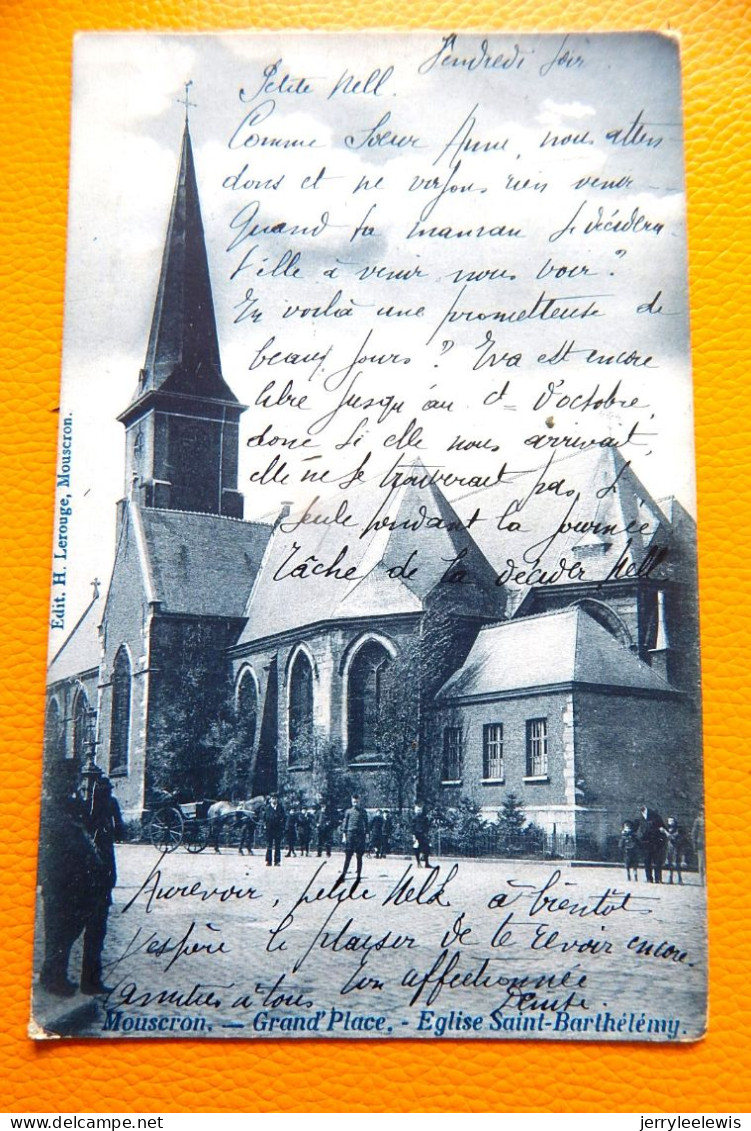 Vendredi soir
Petite Nell.
Comme Soeur Anne, nous atten
dons et ne voyons rien venir
Quand ta maman se décidera
t'elle à venir nous voir?
En voilà une prometteuse de
beaux jours? Eva est encore
libre jusqu'au d'octobre,
donc si elle nous arrivait
elle ne se trouverait pas si
seule pendant la journée
Tâche de la décider Nell.
Aurevoir, petite Nell à bientôt
j'espère le plaisir de te revoir encore.
Amitiés à tous Ton affectionnée
Denise.
Edit. H. Lerouge, Mouscron.
Mouscron. — Grand'Place. - Eglise Saint-Barthélémy.
jerryleelewis